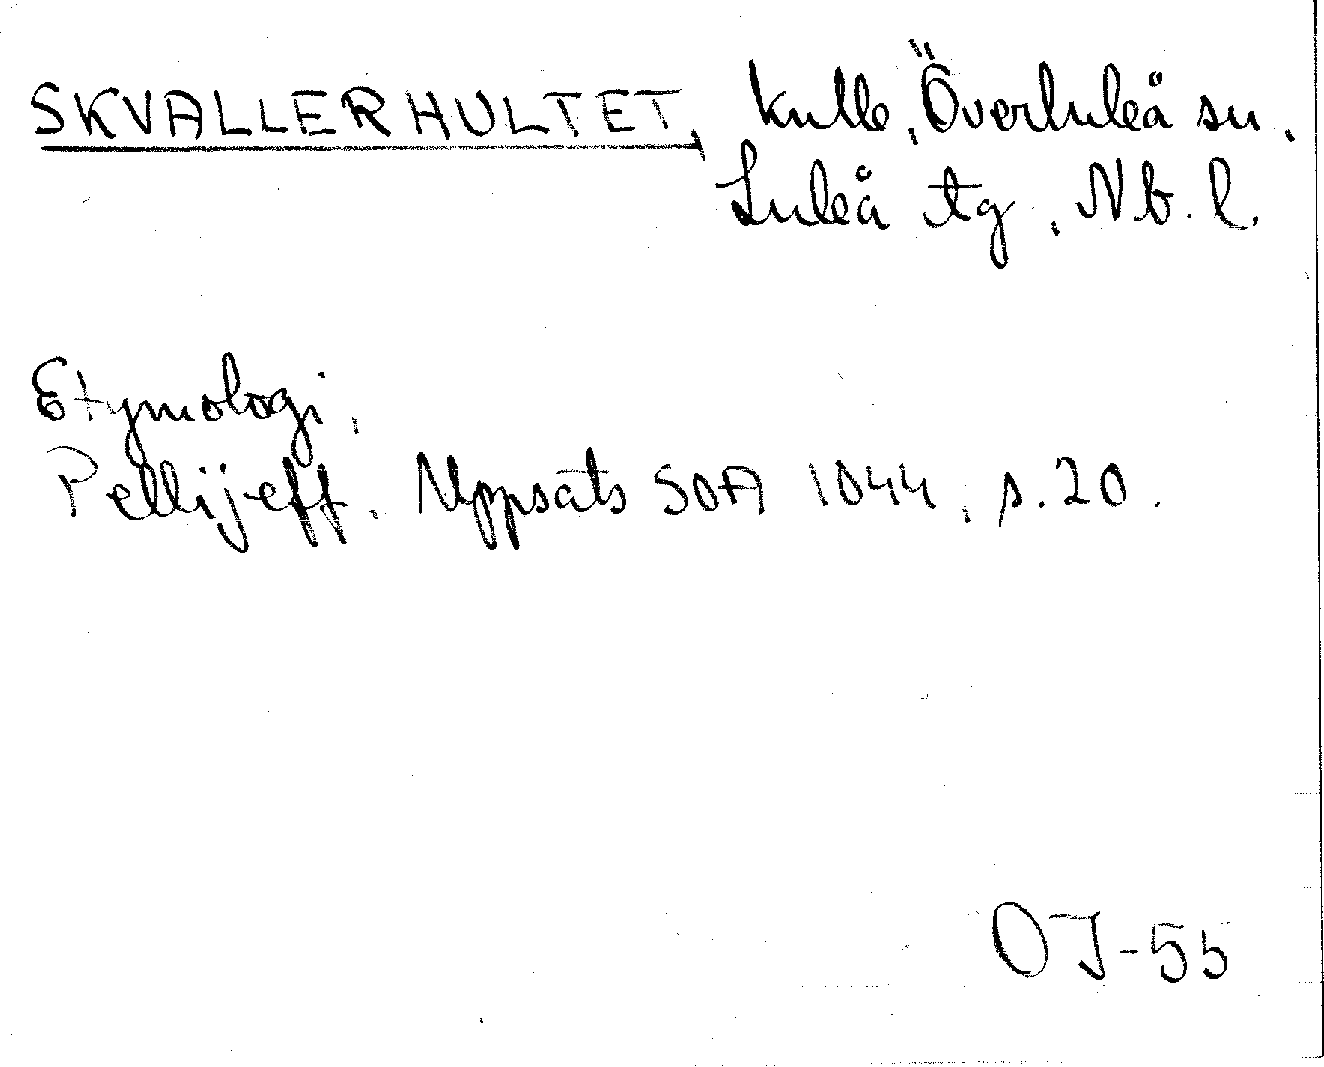 SKVALLERHULTET, kulle, Överluleå sn,
Luleå tg, Nb. l.
Etymologi,
Pellijeff. Uppsats SOA 1044, s. 20.
OJ-55